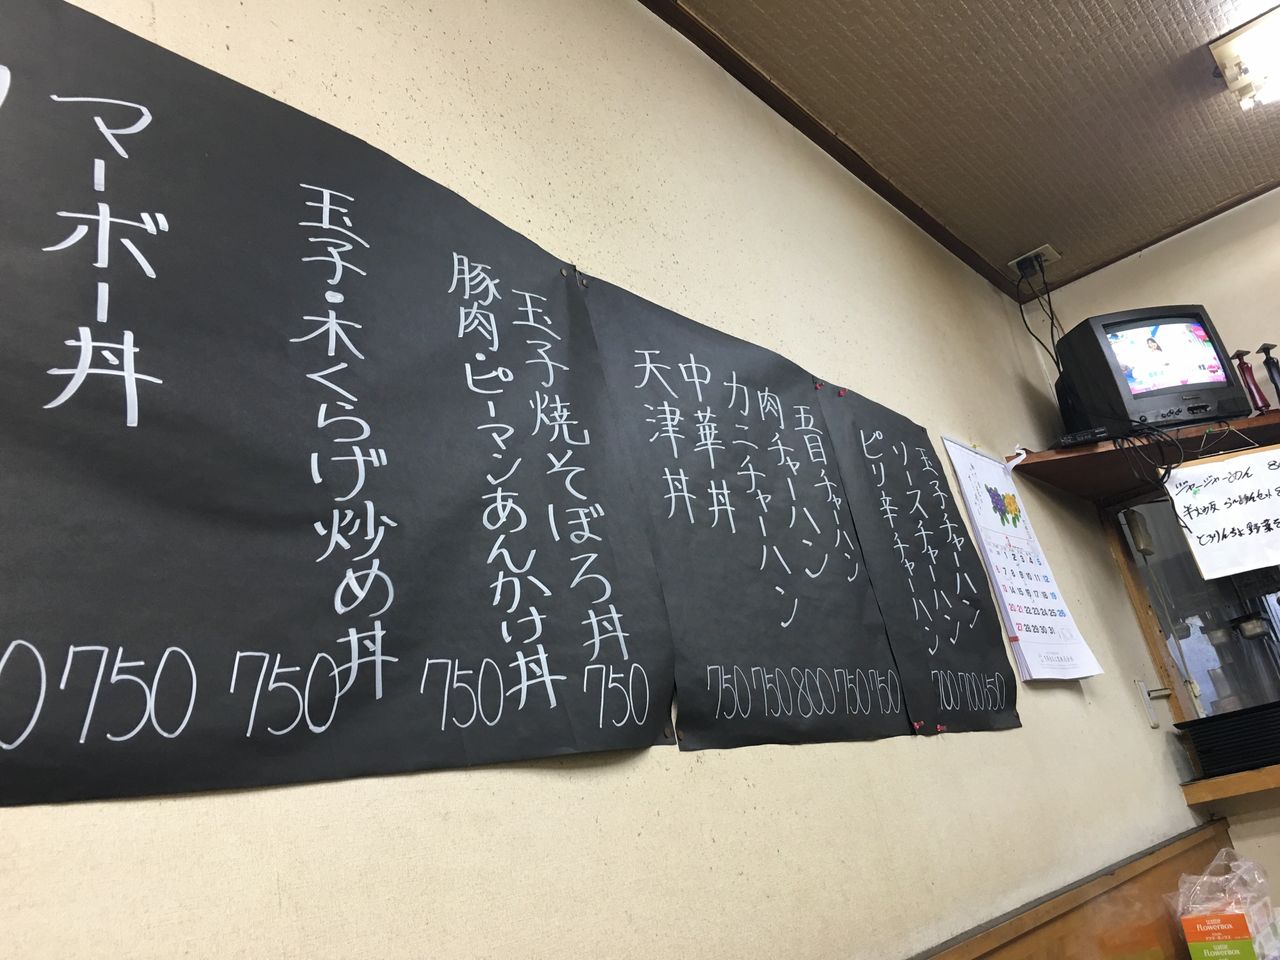 玉子チャーハン
650
ソースチャーハン
700
ピリ辛チャーハン
700
五目チャーハン
750
肉チャーハン
750
カニチャーハン
800
中華丼
750
天津丼
750
玉子焼そぼろ丼
750
豚肉・ピーマンあんかけ丼
750
玉子・木くらげ炒め丼
750
マーボー丼
750
ジャージャーめん
FLOWERBOX